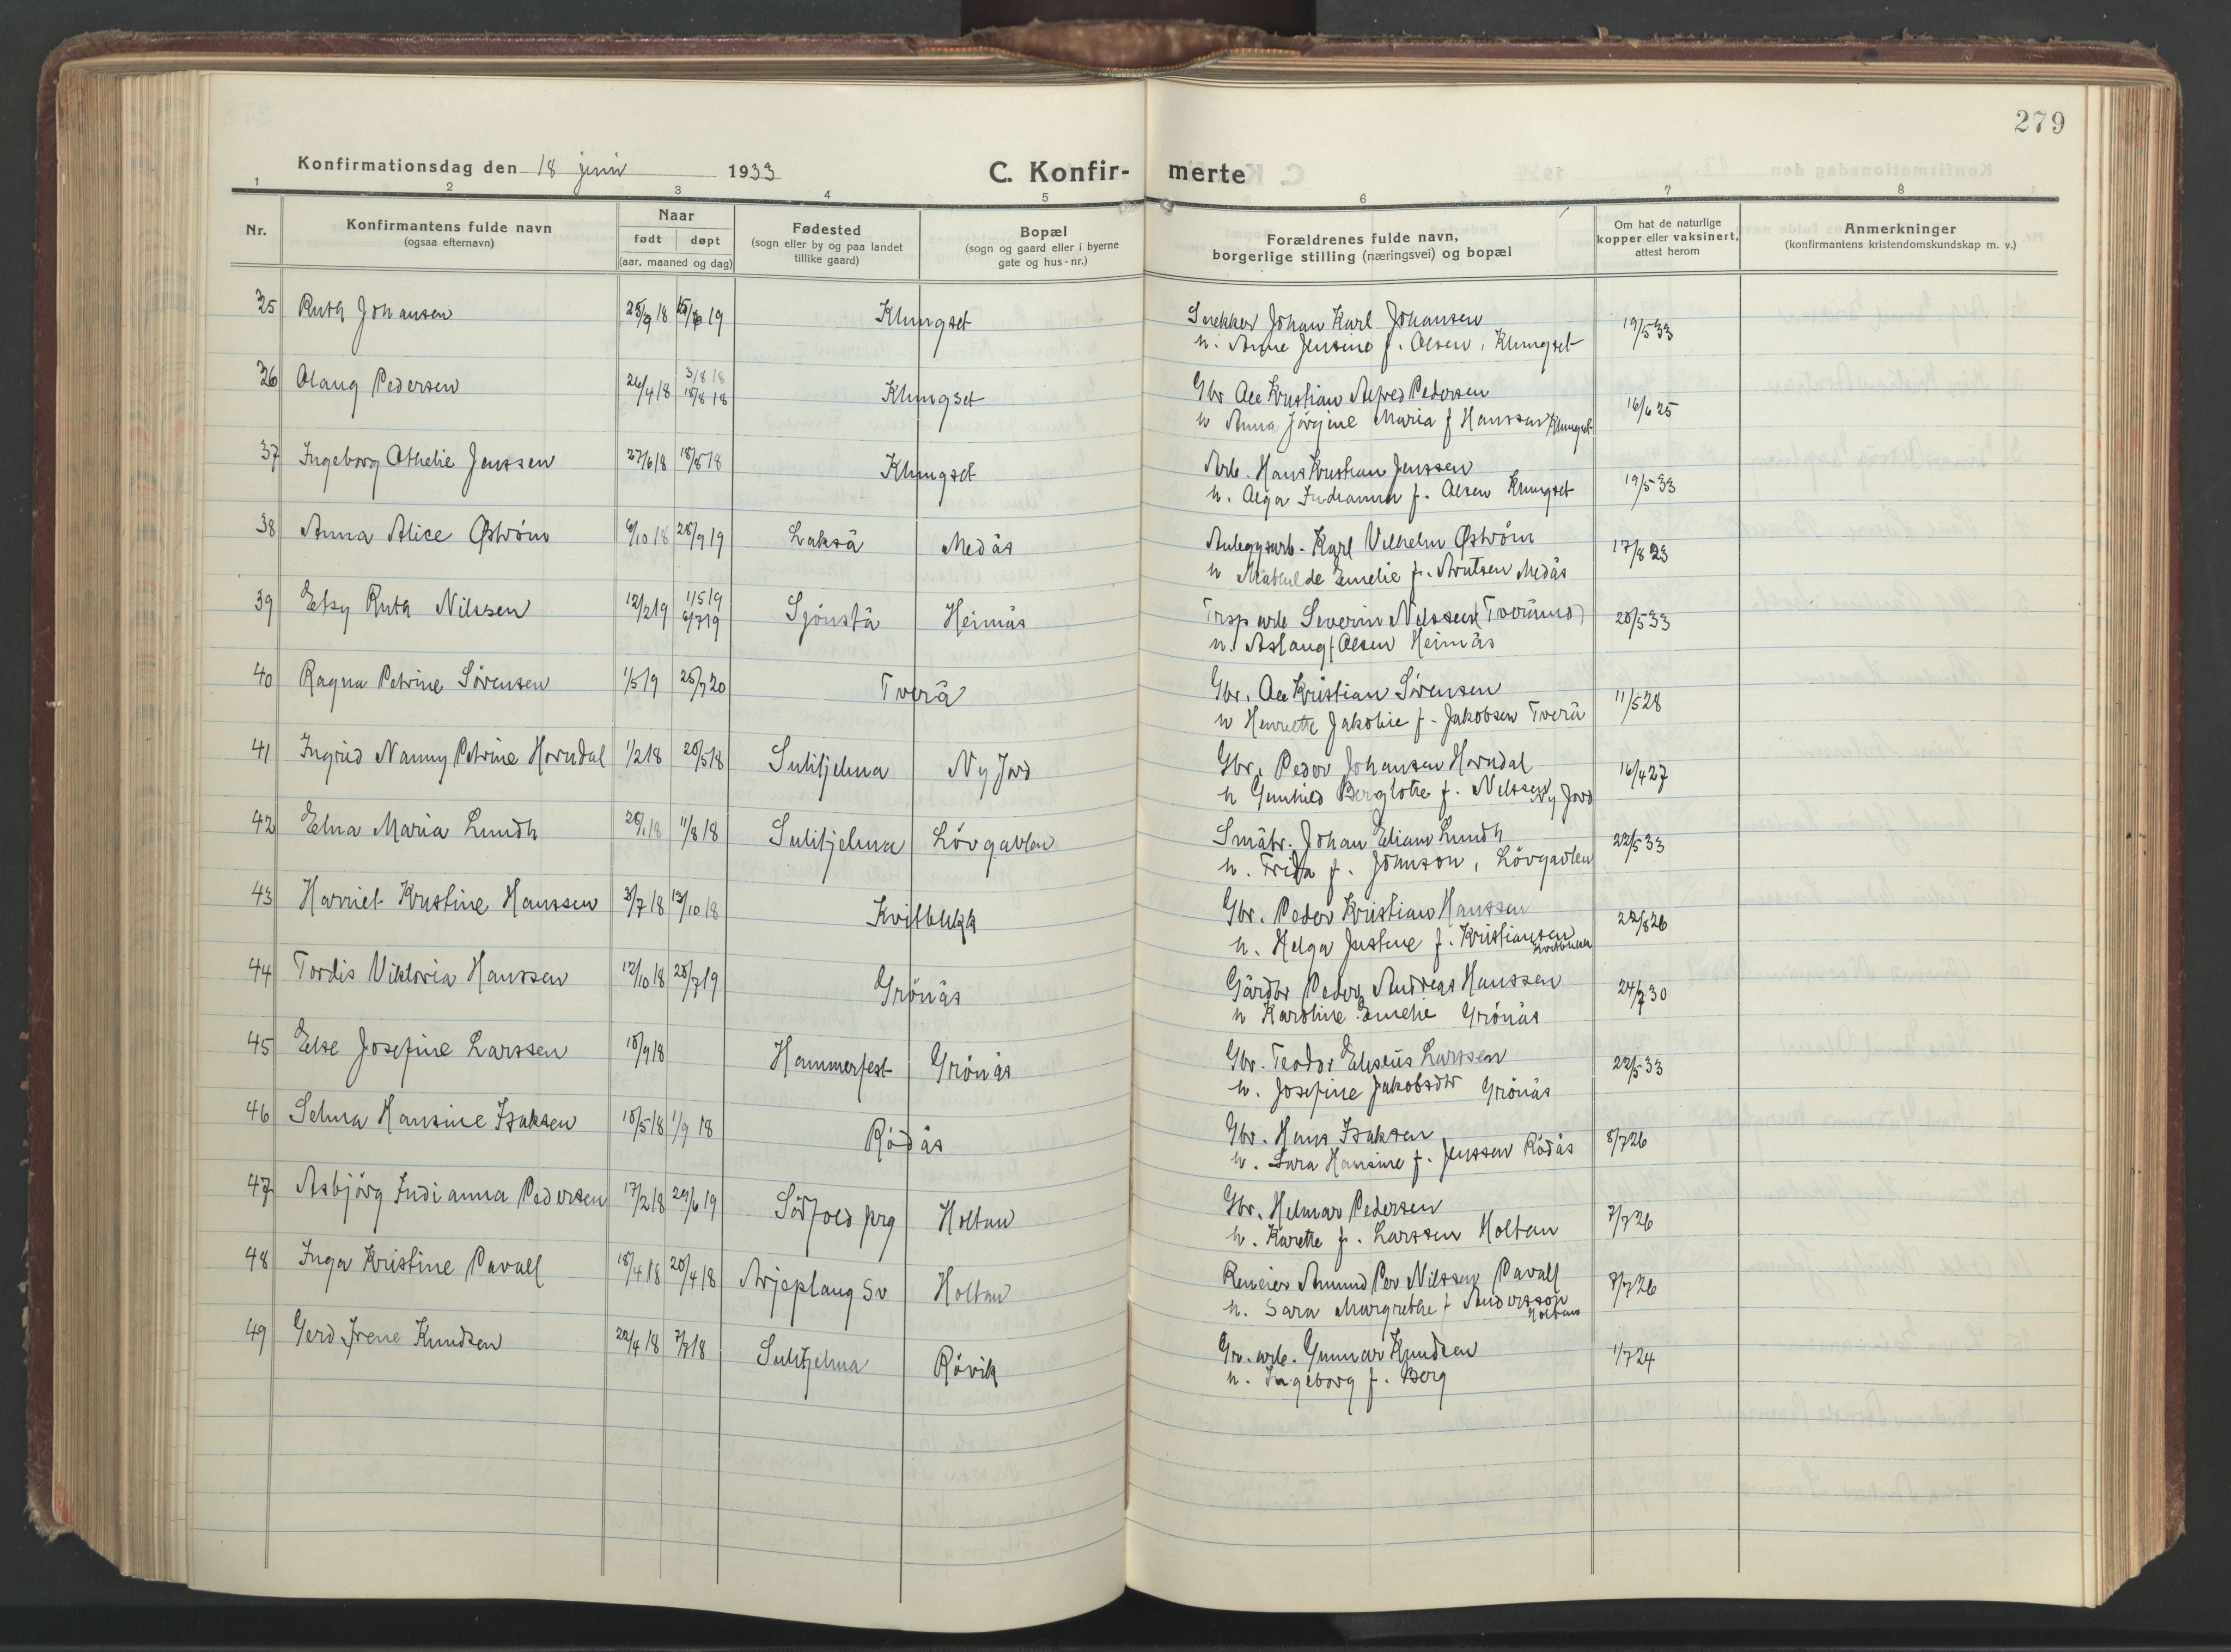 279
Konfirmationsdag den 18 juni 1933
C. Konfir-merte
1 2 3 4 5 6 7 8
Nr.
Konfirmantens fulde navn
(ogsaa efternavn)
Naar
født døpt
(aar, maaned og dag)
Fødested
(sogn eller by og paa landet
tillike gaard)
Bopæl
(sogn og gaard eller i byerne
gate og hus-nr.)
Forældrenes fulde navn,
borgerlige stilling (næringsvei) og bopæl
Om hat de naturlige
kopper eller vaksinert,
attest herom
Anmerkninger
(konfirmantens kristendomskundskap m. v.)
35 Ruth Johansen 25/9 18 19 Klungset Snekker Johan Karl Johansen 19/5 33
h. Anne Jensine f. Olsen, Klungset
36 Olaug Pedersen 26/4 18 3/8 18 Klungset Gbr Ole Kristian Alfred Pedersen 16/6 25
18/8 18 h Anna Jörgine Maria f Hanssen Klungset
37 Ingeborg Othelie Jenssen 27/6 18 18/8 18 Klungset Arb. Hans Kristian Jenssen 19/5 33
h. Olga Indianna f. Olsen Klungset
38 Anna Alice Øström 6/10 18 28/9 19 Lakså Medås Anleggsarb. Karl Vilhelm Øström 17/8 23
h Mathilde Emelie f. Arntsen Medås
39 Elsy Ruth Nilssen 12/2 19 1/5 19 Sjönstå Heimås Trsp arb Severin Nilssen (Tverånes) 20/5 33
6/7 19 h. Aslaug f Olsen Heimås
40 Ragna Petrine Sörensen 1/5 19 25/7 20 Tverå Gbr. Ole Kristian Sörensen 11/5 28
h Henriette Jakobie f. Jakobsen Tverå
41 Ingrid Nanny Petrine Horndal 1/2 18 20/5 18 Sulitjelma Ny Jord Gbr. Peder Johansen Horndal 16/4 27
h Gunhild Berglotte f. Nilssen Ny Jord
42 Elna Maria Lundh 28/1 18 11/8 18 Sulitjelma Lövgavlen Småbr. Johan Elian Lundh 22/5 33
h. Frida f. Johnson, Lövgavlen
43 Harriet Kristine Hanssen 3/7 18 13/10 18 Kvitblikk Gbr. Peder Kristian Hanssen 22/8 26
h. Helga Justine f. Kristiansen Kvitblikk
44 Tordis Viktoria Hanssen 12/10 18 20/7 19 Grönås Gårdbr Peder Andreas Hanssen 24/7 30
h Karoline Emelie Grönås
45 Else Josefine Larssen 18/9 18 Hammerfest Grönås Gbr. Teodor Eliseus Larssen 22/5 33
h. Josefine Jakobsdtr Grönås
46 Selma Hansine Isaksen 10/5 18 1/9 18 Rödås Gbr. Hans Isaksen 8/7 26
h. Lara Hansine f. Jenssen Rödås
47 Asbjörg Indianna Pedersen 17/2 18 29/6 19 Sörfold prg Holtan Gbr. Helmar Pedersen 7/7 26
h. Karette f. Larssen Holtan
48 Inga Kristine Pavall 18/4 18 20/4 18 Arjeplaug Sv Holtan Reneier Amund Per Nilssen Pavall 8/7 26
h. Sara Margrethe f Andersson Holtan
49 Gerd Irene Knudsen 22/4 18 7/7 18 Sulitjelma Rövik Gr. arb. Gunnar Knudsen 1/7 24
h. Ingeborg f. Berg